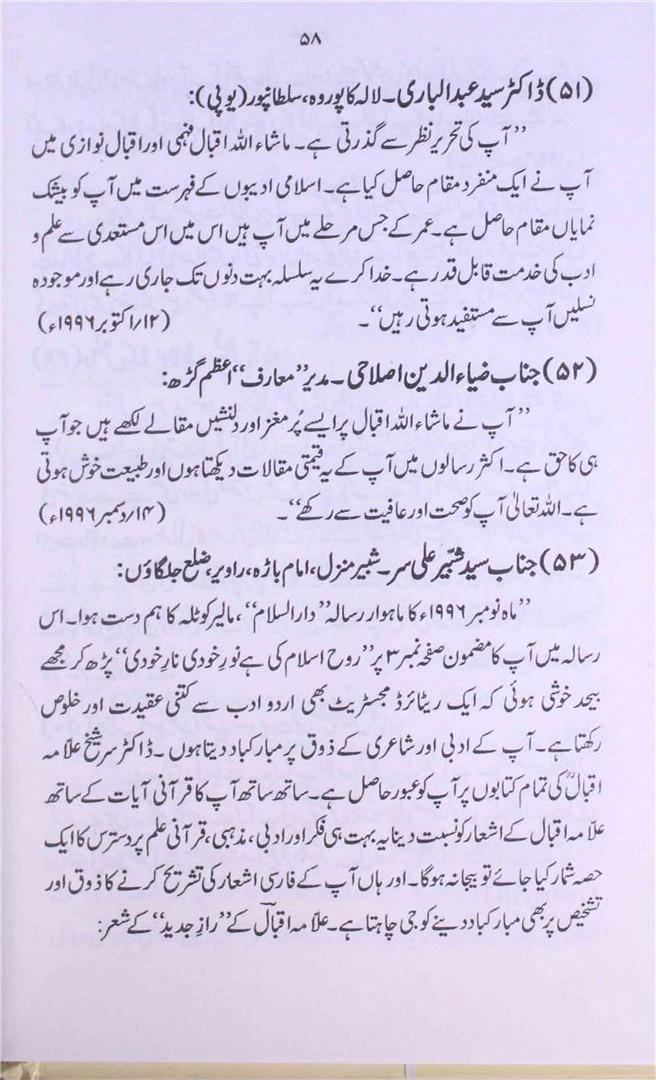 ۵۸
(۵۱) ڈاکٹر سید عبدالباری۔ لالہ کا پوروہ، سلطانپور (یوپی):
’’آپ کی تحریر نظر سے گذرتی ہے۔ ماشاء اللہ اقبال فہمی اور اقبال نوازی میں
آپ نے ایک منفرد مقام حاصل کیا ہے۔ اسلامی ادیبوں کے فہرست میں آپ کو بیشک
نمایاں مقام حاصل ہے۔ عمر کے جس مرحلے میں آپ ہیں اس میں اس مستعدی سے علم و
ادب کی خدمت قابل قدر ہے۔ خدا کرے یہ سلسلہ بہت دنوں تک جاری رہے اور موجودہ
نسلیں آپ سے مستفید ہوتی رہیں‘‘۔ (۱۲؍اکتوبر ۱۹۹۶ء)
(۵۲) جناب ضیاء الدین اصلاحی۔ مدیر ’’معارف‘‘ اعظم گڑھ:
’’آپ نے ماشاء اللہ اقبال پر ایسے پُر مغز اور دلنشیں مقالے لکھے ہیں جو آپ
ہی کا حق ہے۔ اکثر رسالوں میں آپ کے یہ قیمتی مقالات دیکھتا ہوں اور طبیعت خوش ہوتی
ہے۔ اللہ تعالیٰ آپ کو صحت اور عافیت سے رکھے‘‘۔ (۱۴؍دسمبر ۱۹۹۶ء)
(۵۳) جناب سید شبّیر علی سر۔ شبیر منزل، امام باڑہ، راویر، ضلع جلگاؤں:
’’ماہ نومبر ۱۹۹۶ء کا ماہوار رسالہ ’’دارالسلام‘‘، مالیر کوٹلہ کا ہم دست ہوا۔ اس
رسالہ میں آپ کا مضمون صفحہ نمبر ۳ پر ’’روح اسلام کی ہے نورِ خودی نارِ خودی‘‘ پڑھ کر مجھے
بیحد خوشی ہوئی کہ ایک ریٹائرڈ مجسٹریٹ بھی اردو ادب سے کتنی عقیدت اور خلوص
رکھتا ہے۔ آپ کے ادبی اور شاعری کے ذوق پر مبارکباد دیتا ہوں۔ ڈاکٹر سر شیخ علاّمہ
اقبالؒ کی تمام کتابوں پر آپ کو عبور حاصل ہے۔ ساتھ ساتھ آپ کا قرآنی آیات کے ساتھ
علاّمہ اقبال کے اشعار کو نسبت دینا یہ بہت ہی فکر اور ادبی، مذہبی، قرآنی علم پر دسترس کا ایک
حصہ شمار کیا جائے تو بیجا نہ ہوگا۔ اور ہاں آپ کے فارسی اشعار کی تشریح کرنے کا ذوق اور
تشخیص پر بھی مبارکباد دینے کو جی چاہتا ہے۔ علاّمہ اقبالؔ کے ’’رازِ جدید‘‘ کے شعر: